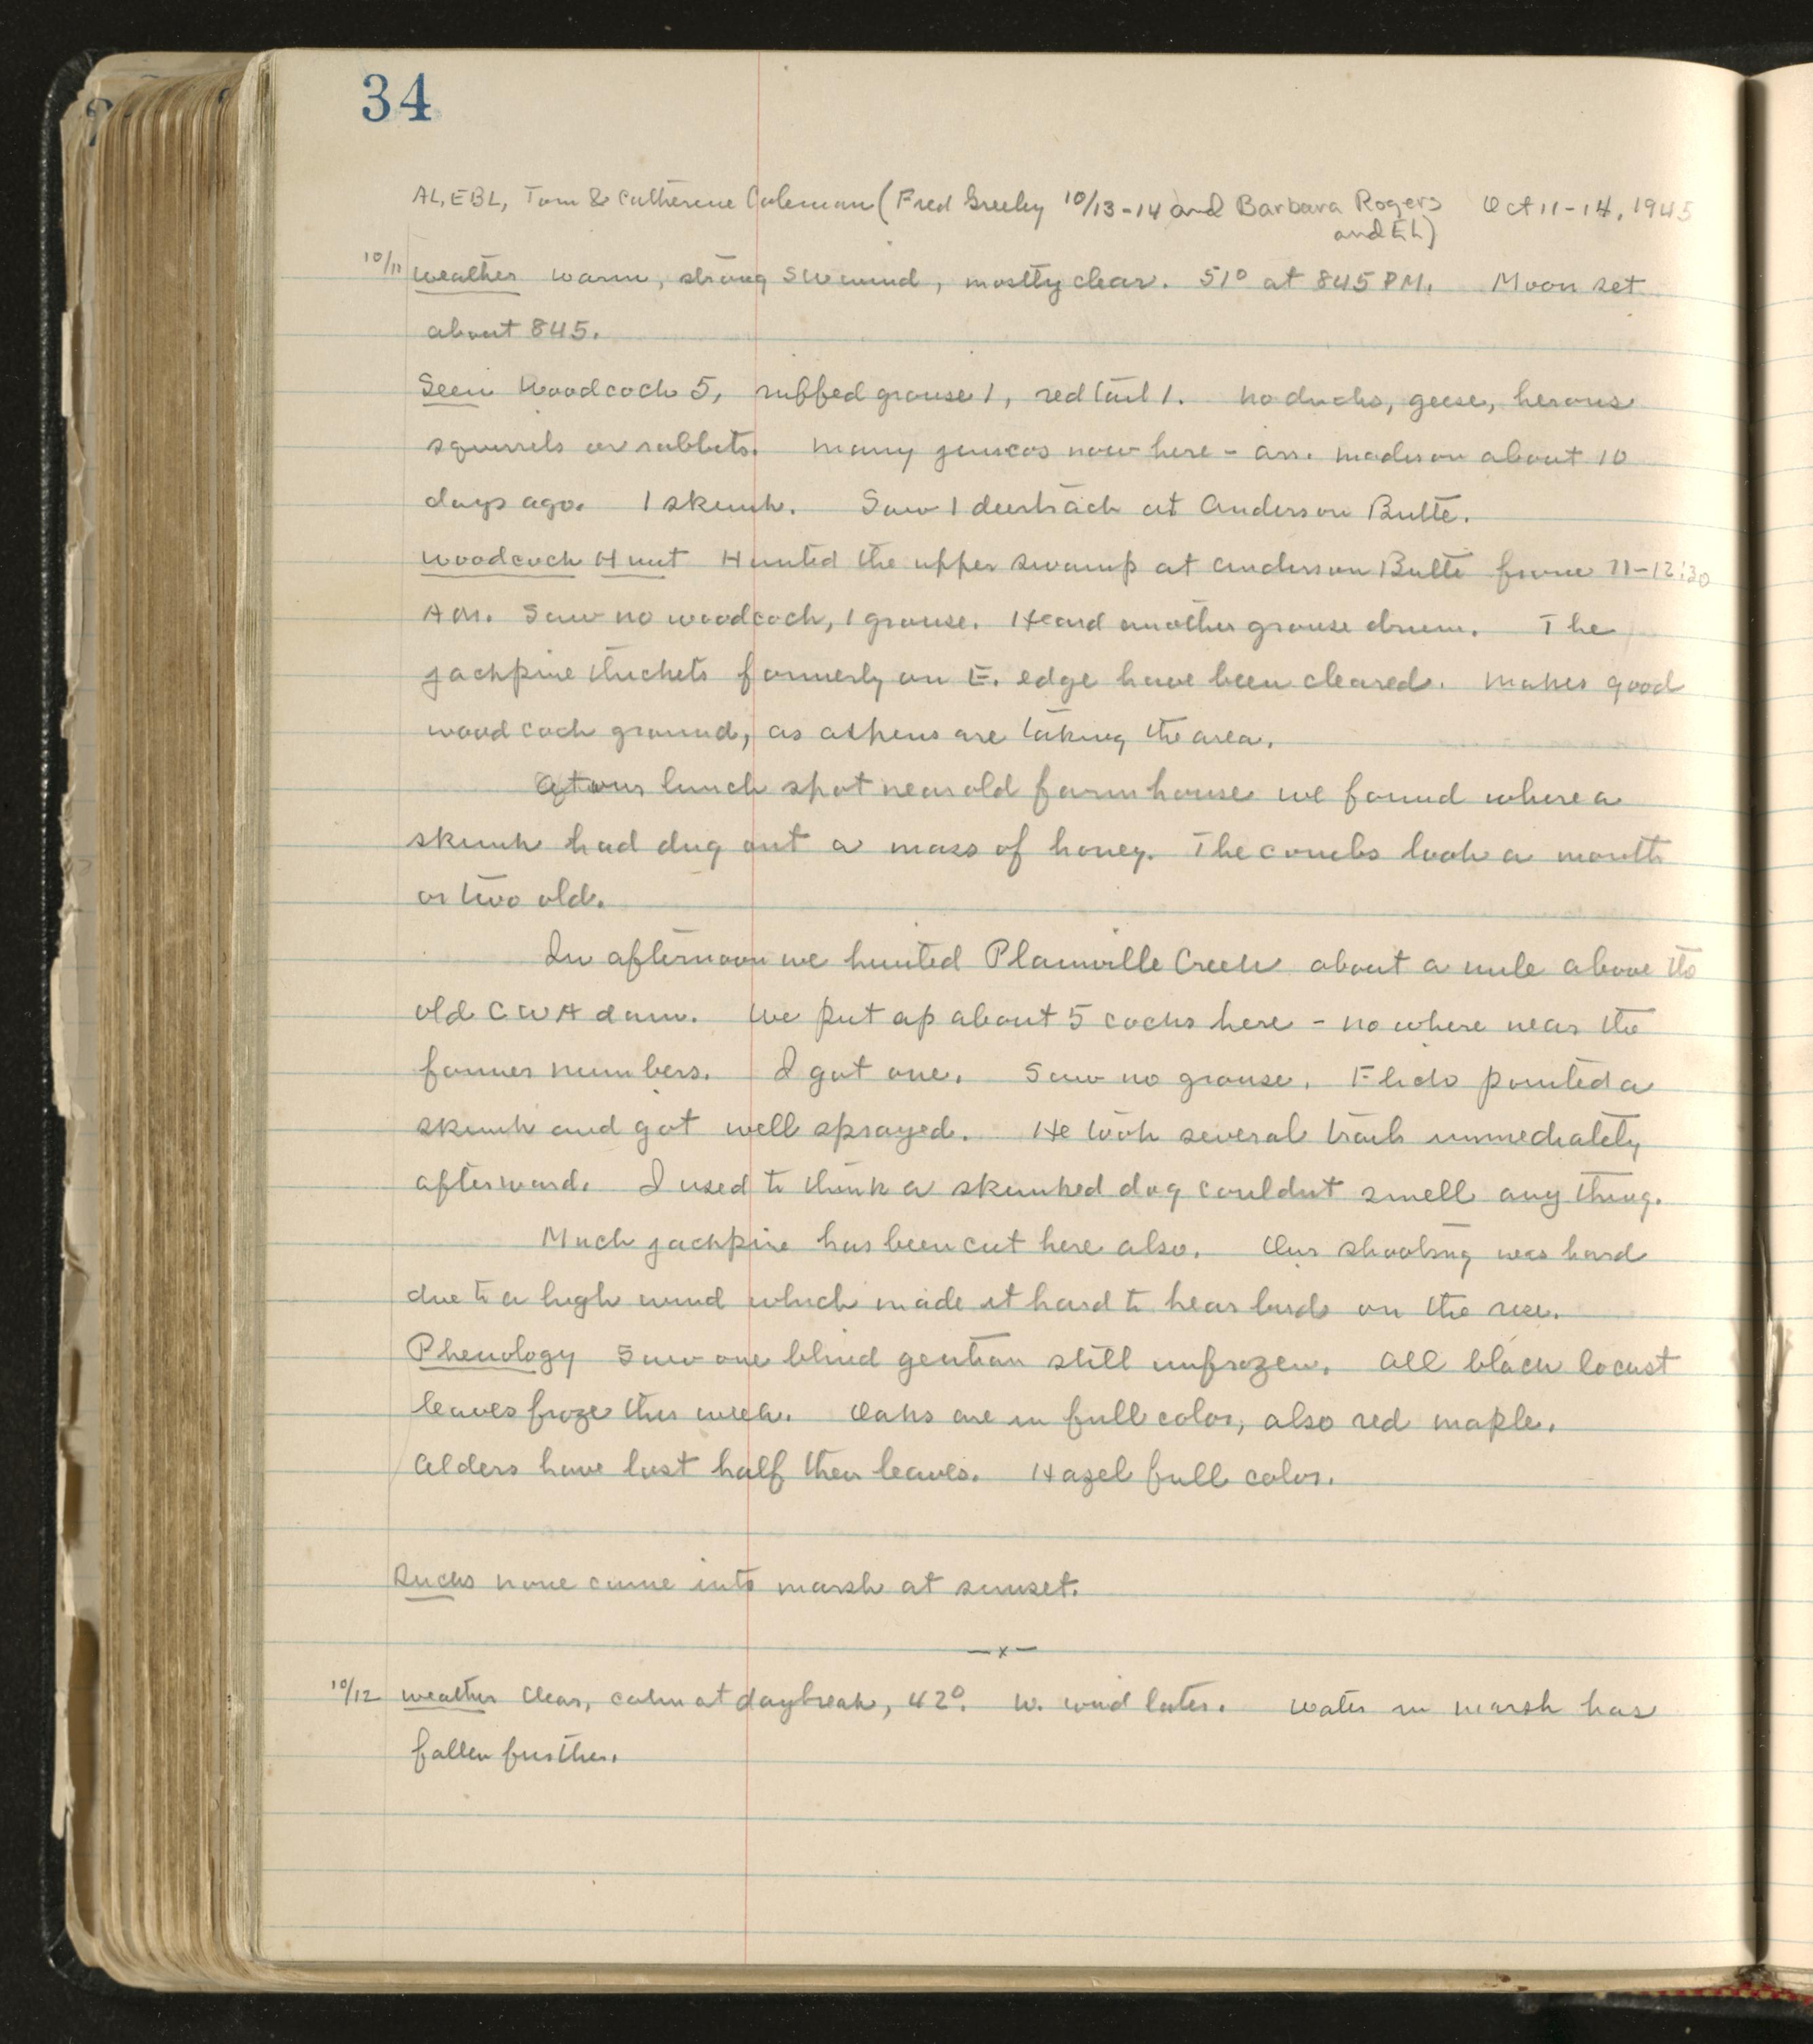 34
AL, EBL, Tom & Catherine Coleman (Fred Greeley 10/13-14 and Barbara Rogers Oct 11-14, 1945
and EL)
10/11 Weather warm, strong SW wind, mostly clear. 51° at 845 PM. Moon set
about 845.
Seen Woodcock 5, ruffed grouse 1, redtail 1. No ducks, geese, herons
squirrels or rabbits. Many juncos now here - arr. Madison about 10
days ago. 1 skunk. Saw 1 deertrack at Anderson Butte.
Woodcock Hunt Hunted the upper swamp at Anderson Butte from 11-12:30
AM. Saw no woodcock, 1 grouse. Heard another grouse drum. The
jackpine thickets formerly on E. edge have been cleared. Makes good
woodcock ground, as aspens are taking the area.
At our lunch spot near old farm house we found where a
skunk had dug out a mass of honey. The combs look a month
or two old.
In afternoon we hunted Plainville Creek about a mile above the
old CWA dam. We put up about 5 cocks here - nowhere near the
former numbers. I got one. Saw no grouse. Flick pointed a
skunk and got well sprayed. He took several trails immediately
afterward. I used to think a skunked dog couldnt smell anything.
Much jackpine has been cut here also. Our shooting was hard
due to a high wind which made it hard to hear birds on the rise.
Phenology Saw one blind gentian still unfrozen. All black locust
leaves froze this week. Oaks are in full color, also red maple.
Alders have lost half their leaves. Hazel full color.
Ducks none came into marsh at sunset.
—x—
10/12 Weather Clear, calm at daybreak, 42°. W. wind later. Water in marsh has
fallen further.